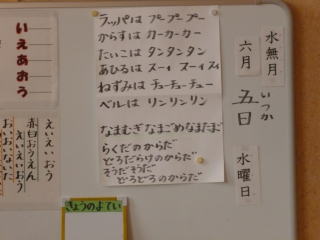 いえあおう
ラッパは プープープー
からすは カーカーカー
たいこは タンタンタン
あひるは スーイ スーイスイ
ねずみは チューチューチュー
ベルは リンリンリン
なまむぎなまごめなまたまご
らくだのからだ
どろだらけのからだ
そうだそうだ
どろどろのからだ
水無月
六月
いつか
五日
水曜日
えいえいおう
赤白おうえん
えいえいおう
おいおいない
きょうのよてい